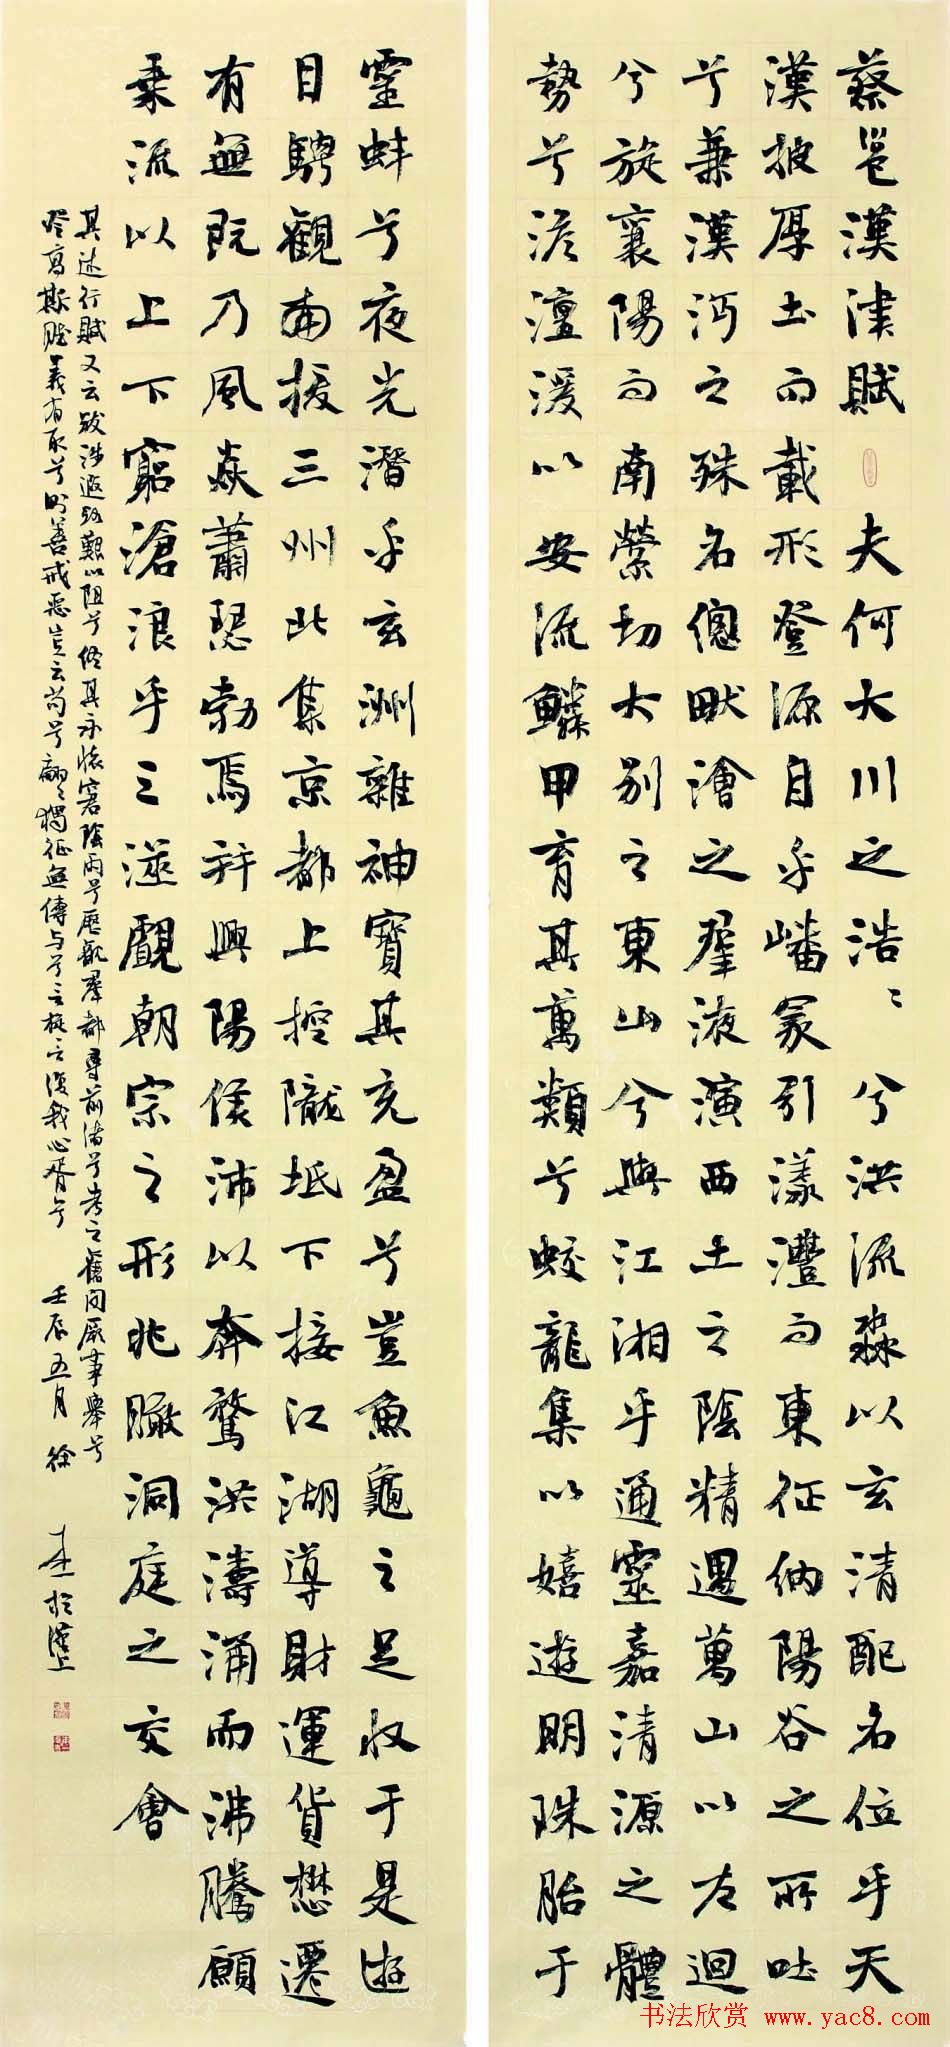 蔡邕漢津賦 夫何大川之浩浩兮洪流淼以玄清配名位乎天
漢披厚土而載形登源自乎嶓冢引漾灃而東征納陽谷之所吐
兮兼漢沔之殊名總畎澮之羣液演西土之陰精遇萬山以左迴
兮旋襄陽而南縈切大别之東山兮與江湘乎通靈嘉清源之體
勢兮澹澶湲以安流鱗甲育其萬類兮蛟龍集以嬉遊明珠胎于
靈蚌兮夜光潛乎玄洲雜神寶其充盈兮豈魚龜之足收于是遊
目騁觀南援三州北集京都上控隴坻下接江湖導財運貨懋遷
有無既乃風焱蕭瑟勃焉并興陽侯沛以奔驚洪濤涌而沸騰願
乘流以上下窮滄浪乎三澨覷朝宗之形兆瞰洞庭之交會
其述行賦又云跋涉遐路艱以阻兮終其永懷窘陰雨兮歷觀羣都尋前緒兮考之舊聞厥事舉兮
登高斯賦義有取兮則善戒惡豈云苟兮翩翩獨征無儔與兮言旋言復我心胥兮 壬辰五月 徐
於漢上
书法欣赏 www.yac8.com